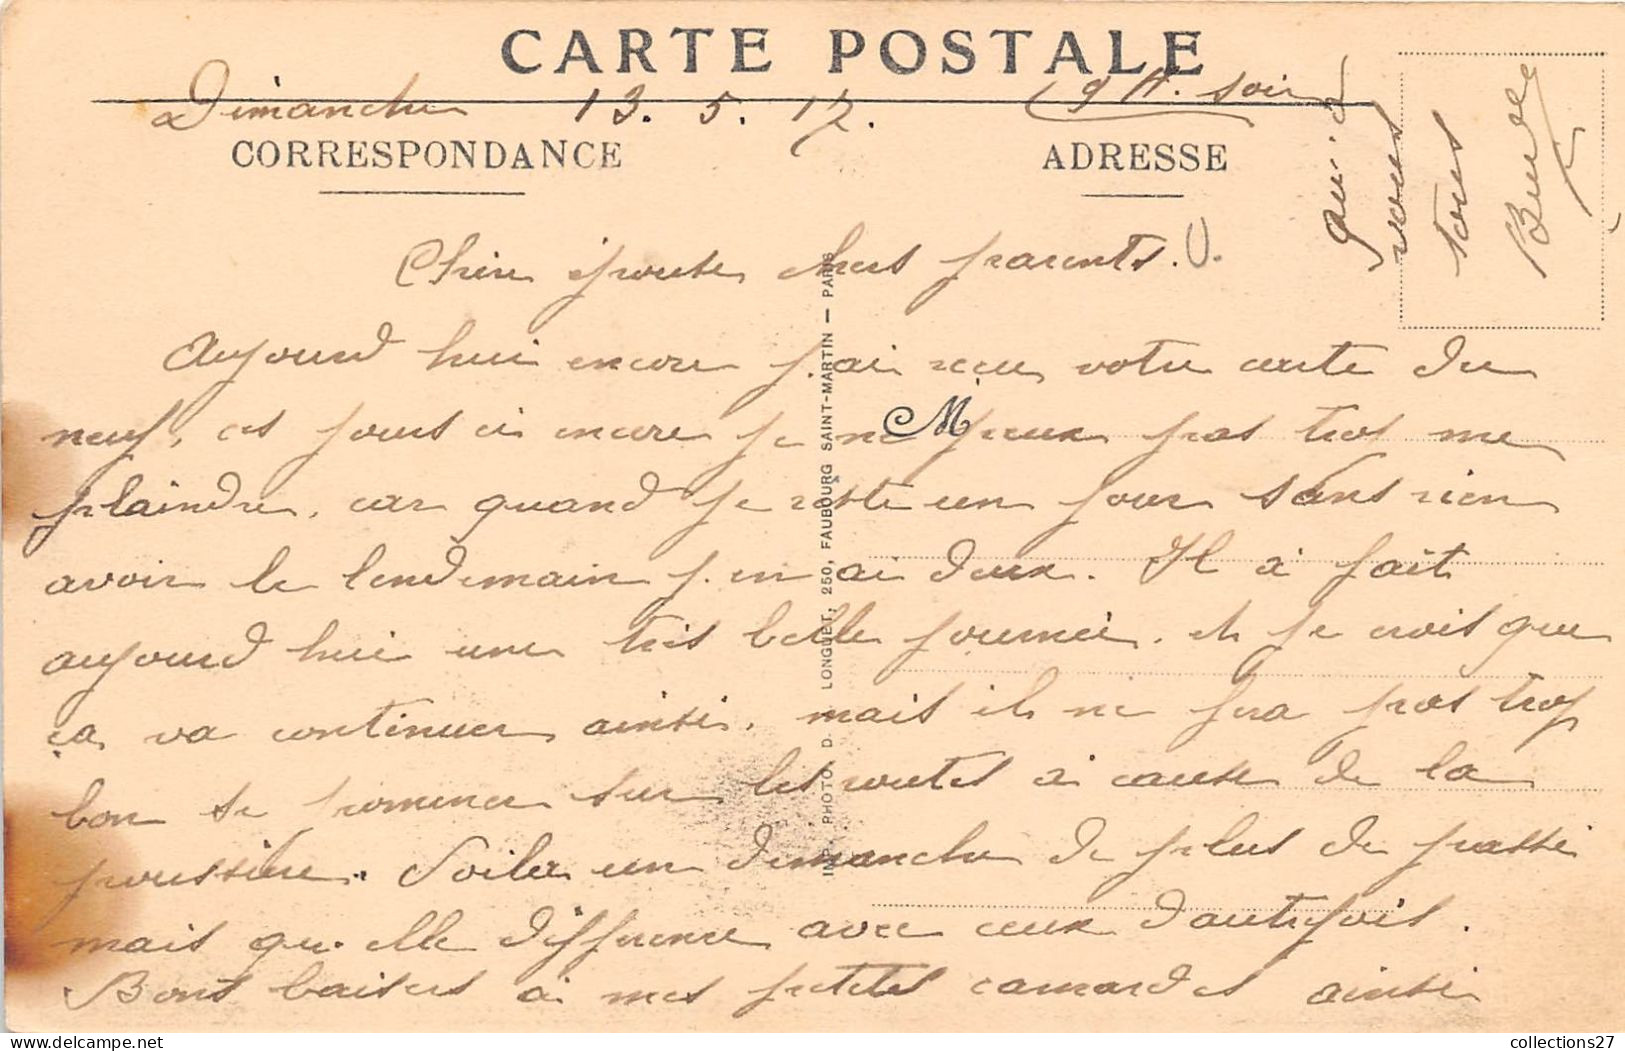 CARTE POSTALE
Dimanche 13. 5. 17. 9 H. soir
CORRESPONDANCE
ADRESSE
Chère épouse chers parents.
Aujourd hui encore j. ai recu votre carte du
neuf, ces jours ci encore je ne peux pas trop me
plaindre, car quand je reste un jour sans rien
avoir le lendemain j. en ai deux. Il à fait
aujourd hui une très belle journée. et je crois que
ça va continuer ainsi. mais il ne fera pas trop
bon se promener sur les routes à cause de la
poussière. Voila un dimanche de plus de passé
mais qu. elle différence avec ceux d'autrefois.
Bons baisers à mes petites camardes ainsi
qu. à
vous
tous
M
IMP. PHOTO. D. LONGUET, 250, FAUBOURG SAINT-MARTIN — PARIS
collections27